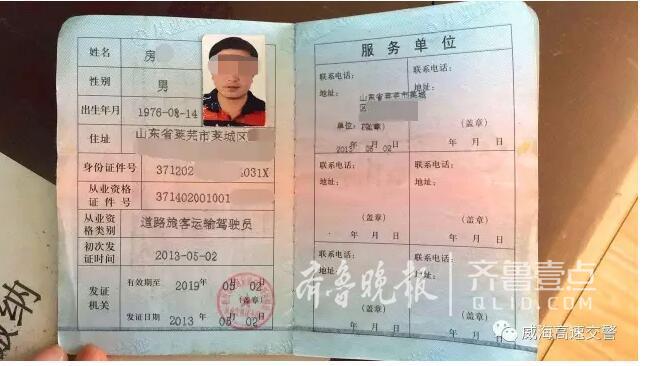 姓名 房
性别 男
出生年月 1976-08-14
住址 山东省莱芜市莱城区
身份证件号 371202 031X
从业资格
证件号 371402001001
从业资
格类别 道路旅客运输驾驶员
初次发
证时间 2013-05-02
发证
机关
有效期至 2019 年 05 02
(盖章)
发证日期 2013 05 02
年 月 日
服务单位
联系电话:
地址: 山东省莱芜市莱城
区
单位:
(盖章)
2013 05 02
年 月 日
联系电话:
地址:
(盖章)
年 月 日
联系电话:
地址:
(盖章)
年 月 日
联系电话:
地址:
(盖章)
年 月 日
联系电话:
地址:
(盖章)
年 月 日
联系电话:
地址:
年 月 日
齐鲁晚报
齐鲁壹点
QLID.COM
威海高速交警
缴纳